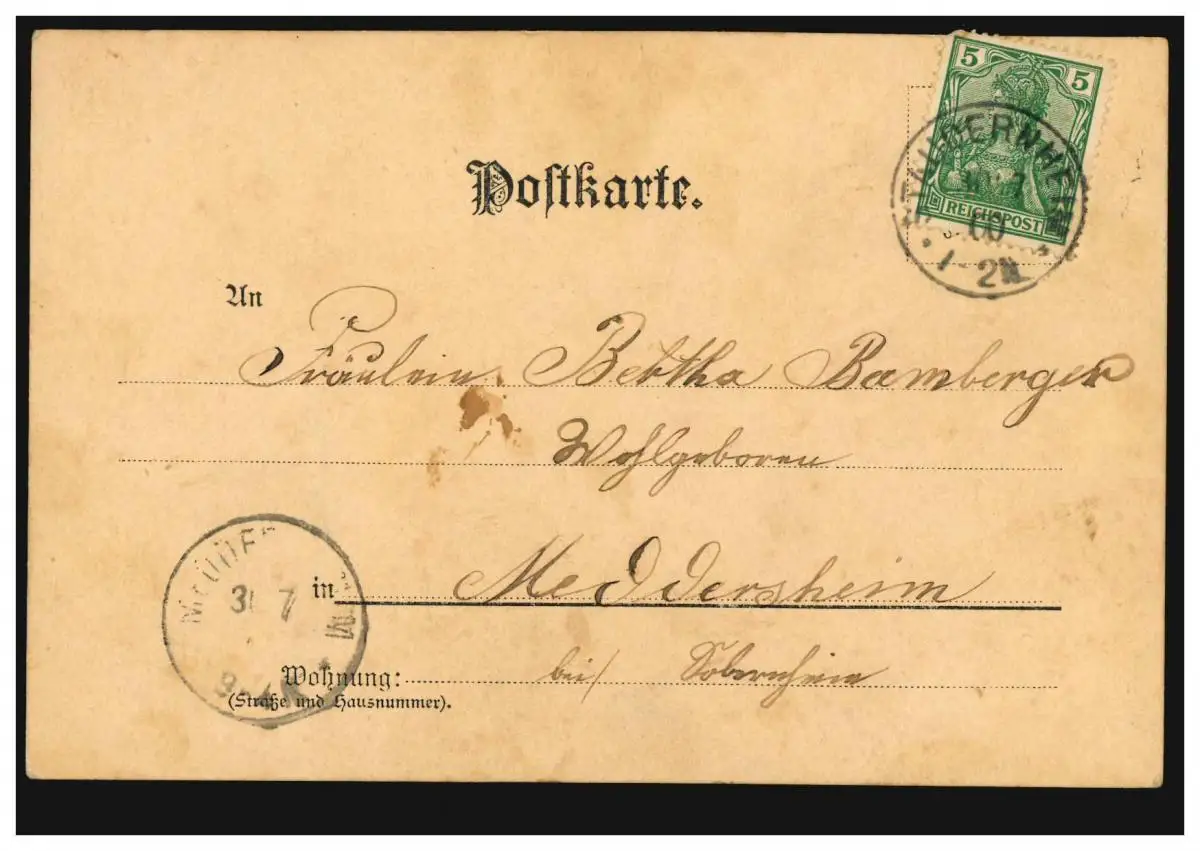 5 5
REICHSPOST
00
1-2N.
Postkarte.
An
Fräulein Bertha Bamberger
Wohlgeboren
in Meddersheim
31 7
Wohnung: bei/ Sobernheim
(Straße und Hausnummer).